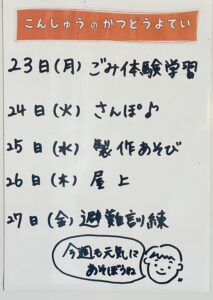 こんしゅうのかつどうよてい
23日(月)ごみ体験学習
24日(火)さんぽ♪
25日(水)製作あそび
26日(木)屋上
27日(金)避難訓練
今週も元気に
あそぼうね